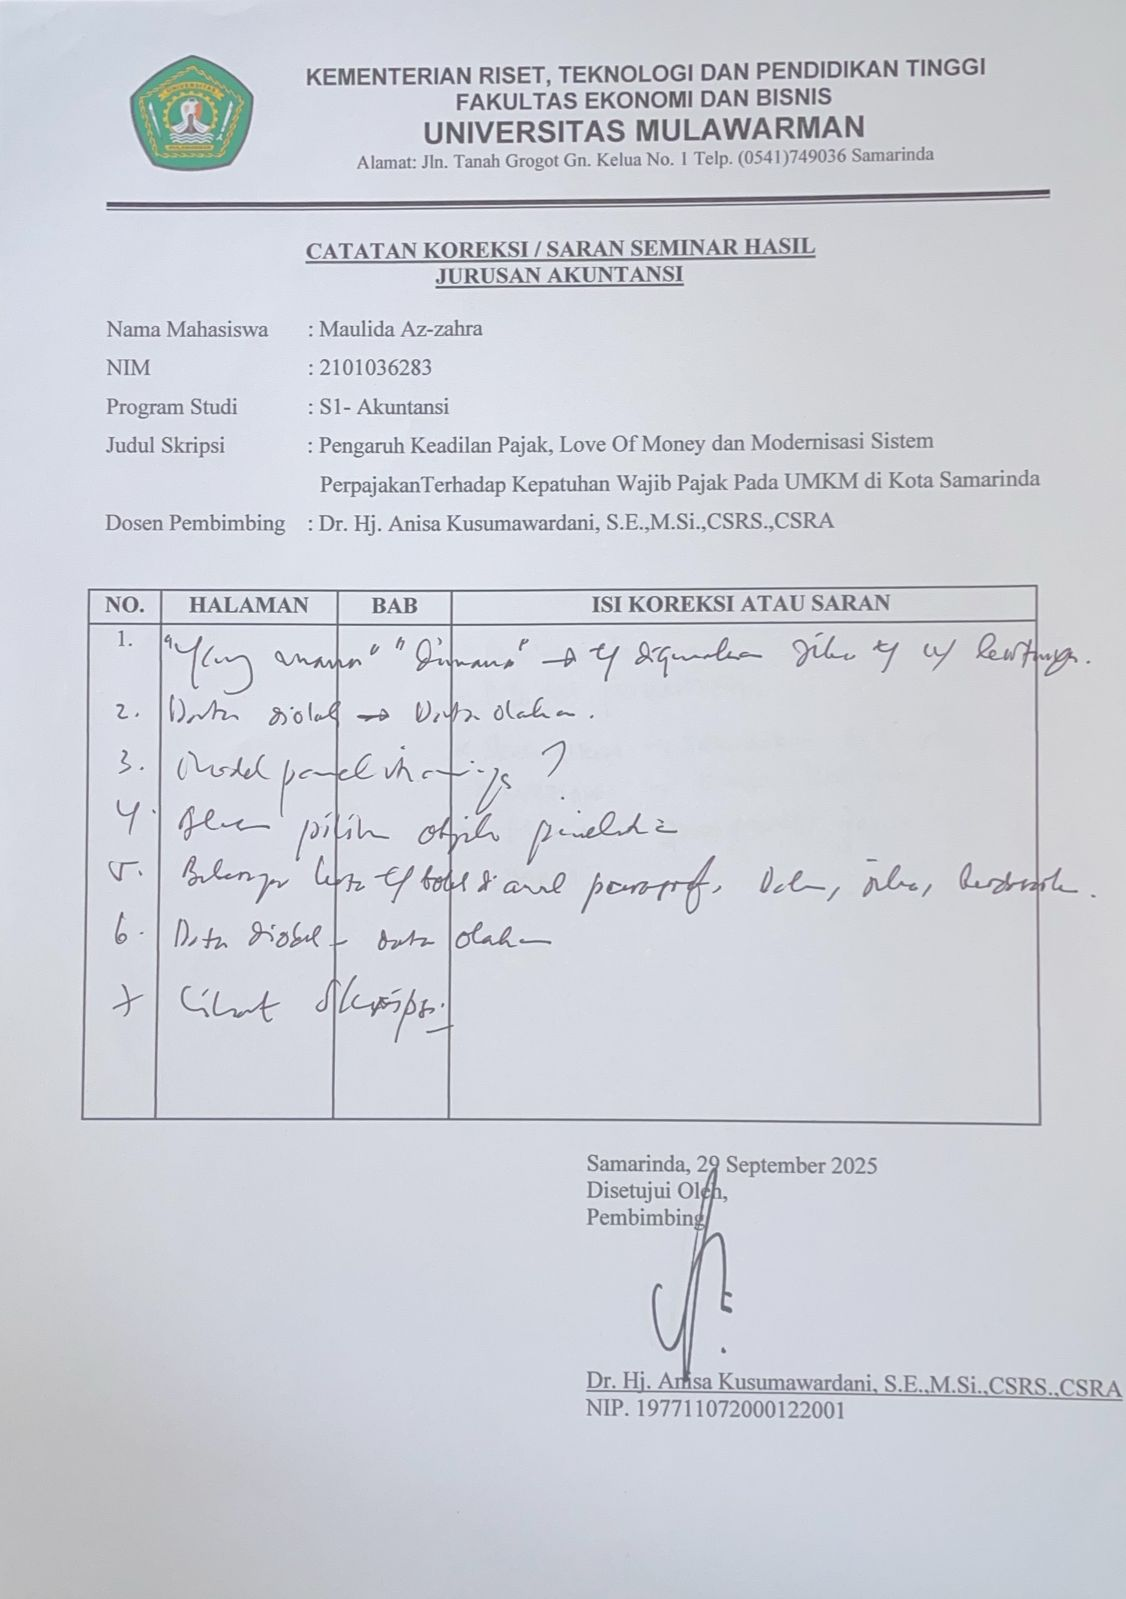 KEMENTERIAN RISET, TEKNOLOGI DAN PENDIDIKAN TINGGI
FAKULTAS EKONOMI DAN BISNIS
UNIVERSITAS MULAWARMAN
Alamat: Jln. Tanah Grogot Gn. Kelua No. 1 Telp. (0541)749036 Samarinda
CATATAN KOREKSI / SARAN SEMINAR HASIL
JURUSAN AKUNTANSI
Nama Mahasiswa : Maulida Az-zahra
NIM : 2101036283
Program Studi : S1- Akuntansi
Judul Skripsi : Pengaruh Keadilan Pajak, Love Of Money dan Modernisasi Sistem
PerpajakanTerhadap Kepatuhan Wajib Pajak Pada UMKM di Kota Samarinda
Dosen Pembimbing : Dr. Hj. Anisa Kusumawardani, S.E.,M.Si.,CSRS.,CSRA
NO. HALAMAN BAB ISI KOREKSI ATAU SARAN
1. "Yang mana" "Dimana" → digunakan
2. Data diolah → Data olahan.
3. Model ?
4. pilih
5. tabel di awal paragraf.
6. Data diolah - data olahan
7 Lihat
Samarinda, 29 September 2025
Disetujui Oleh,
Pembimbing
Dr. Hj. Anisa Kusumawardani, S.E.,M.Si.,CSRS.,CSRA
NIP. 197711072000122001